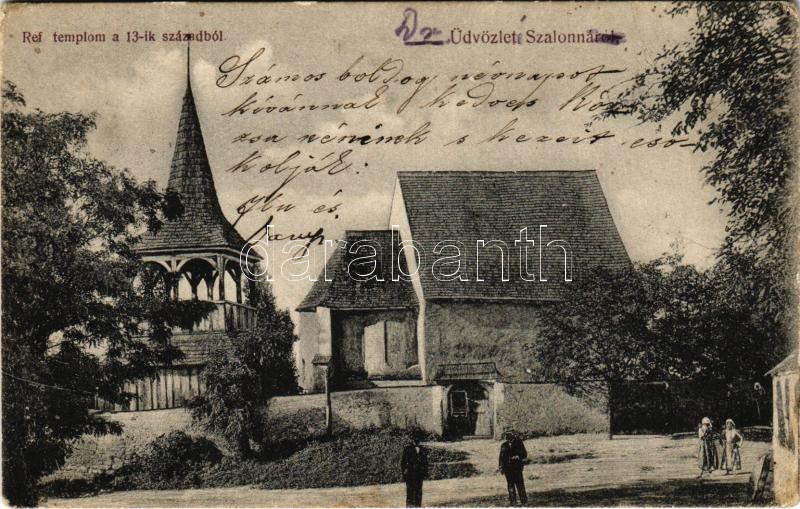 Ref templom a 13-ik századból.
Üdvözlet Szalonnáról
Számos boldog névnapot
kívánnak kedves Róz
zsa néninek s kezeit cso
kolják:
és
darabanth